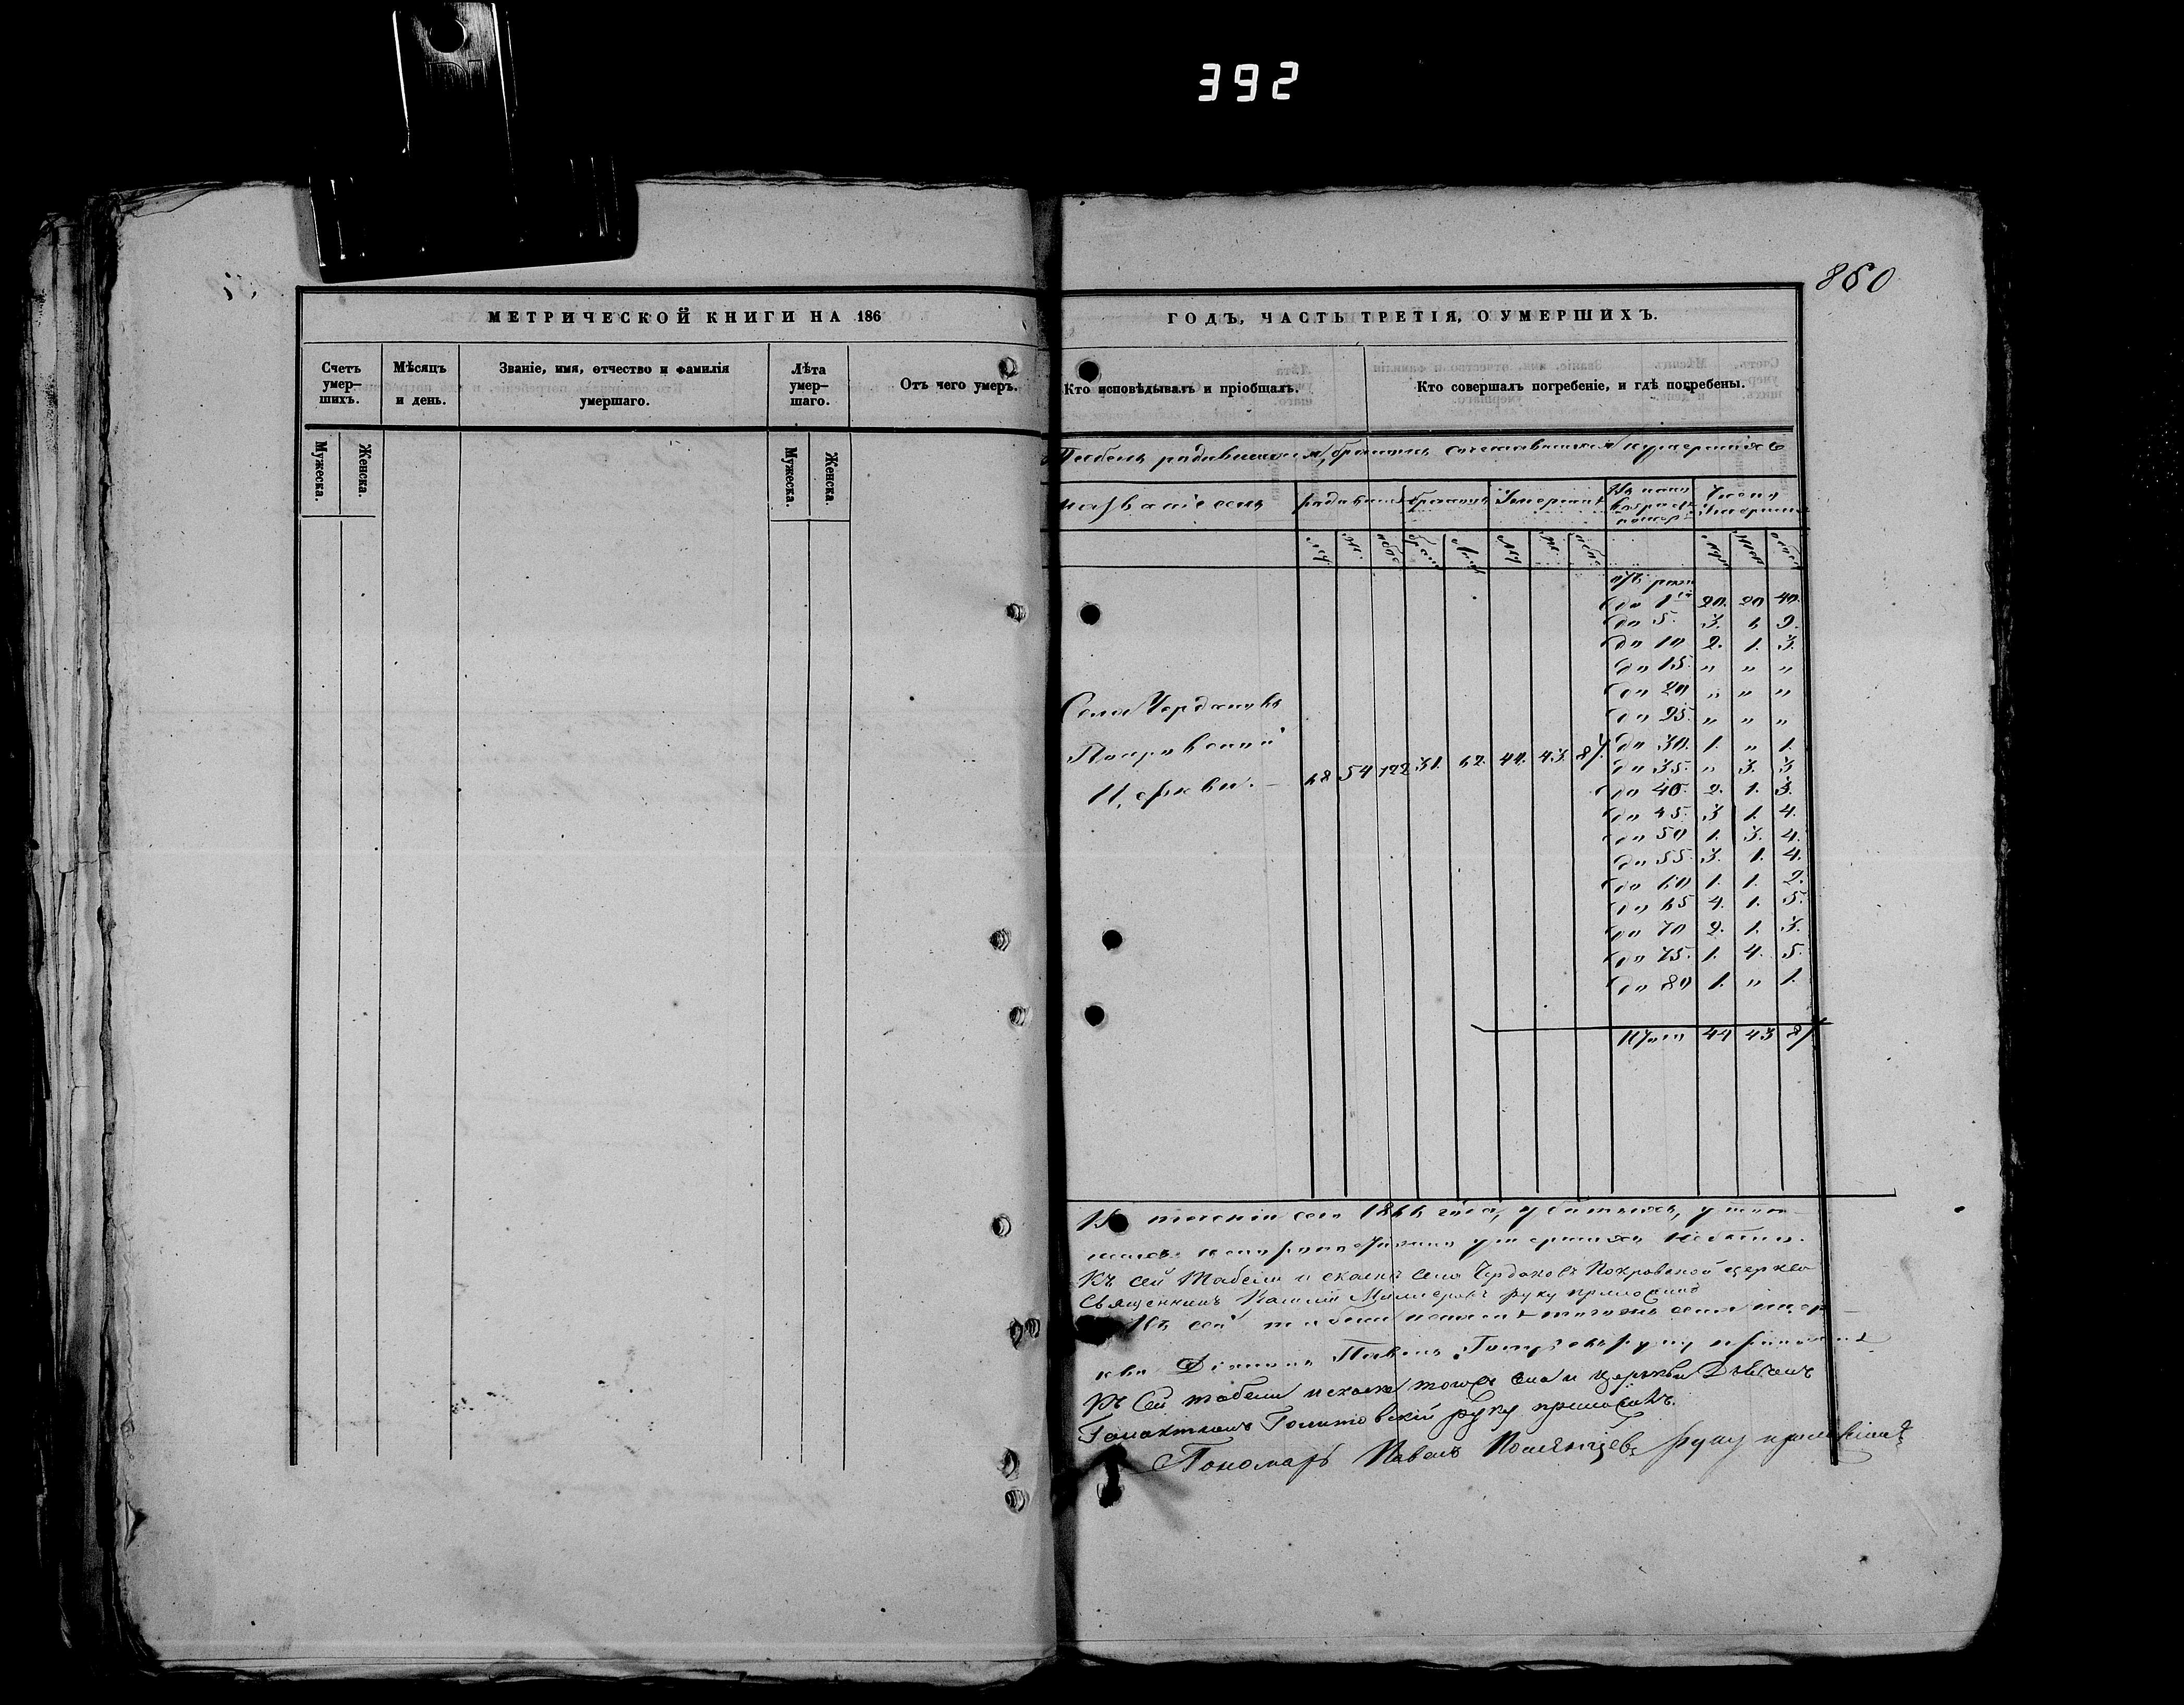 392
860
МЕТРИЧЕСКОЙ КНИГИ НА 186
Счетъ умер-шихъ.
Мѣсяцъ и день.
Званіе, имя, отчество и фамилія умершаго.
Лѣта умер-шаго.
Отъ чего умеръ.
Мужеска.
Женска.
Мужеска.
Женска.
ГОДЪ, ЧАСТЬ ТРЕТІЯ, О УМЕРШИХЪ.
Кто исповѣдывалъ и пріобщалъ.
Кто совершалъ погребеніе, и гдѣ погребены.
Табель родившихся, бракомъ сочетавшихся и умершихъ
Названіе села
Села Чердаковъ
Покровской
Церкви. 68 54 122 31. 62. 44. 43. 87.
до 1 20. 20 40.
до 5. 3. 6 9.
до 10 2. 1. 3.
до 15. „ „ „
до 20 „ „ „
до 25. „ „ „
до 30. 1. „ 1.
до 35. „ 3. 3
до 40. 2. 1. 3.
до 45. 3 1. 4.
до 50 1. 3. 4.
до 55. 3. 1. 4.
до 60 1. 1. 2.
до 65 4. 1. 5.
до 70 2. 1. 3.
до 75. 1. 4. 5.
до 80 1. „ 1.
Итого 44 43 87
1866 года, убитыхъ,
умершихъ небыло.
Къ сей табели и скаскѣ села Чердаковъ Покровской церкви
Священникъ руку приложилъ
Къ сей табели
Павелъ руку
Къ сей табели и скаске тогоже села и церкви
руку приложилъ.
Пономарь Павелъ руку приложилъ